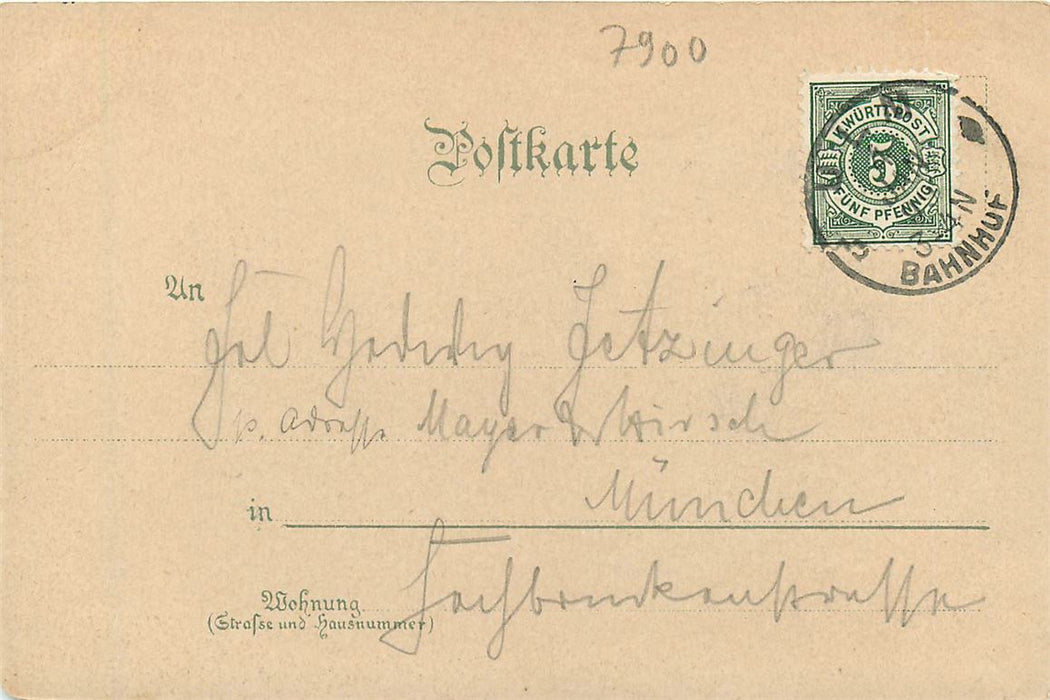 7900
Postkarte
K. WÜRTT. POST
5
FÜNF PFENNIG
ULM
BAHNHOF
An Frl Hedwig Jetzinger
p. Adresse Mayer & Hirsch
in München
Hochbrückenstrasse
Wohnung
(Strasse und Hausnummer)